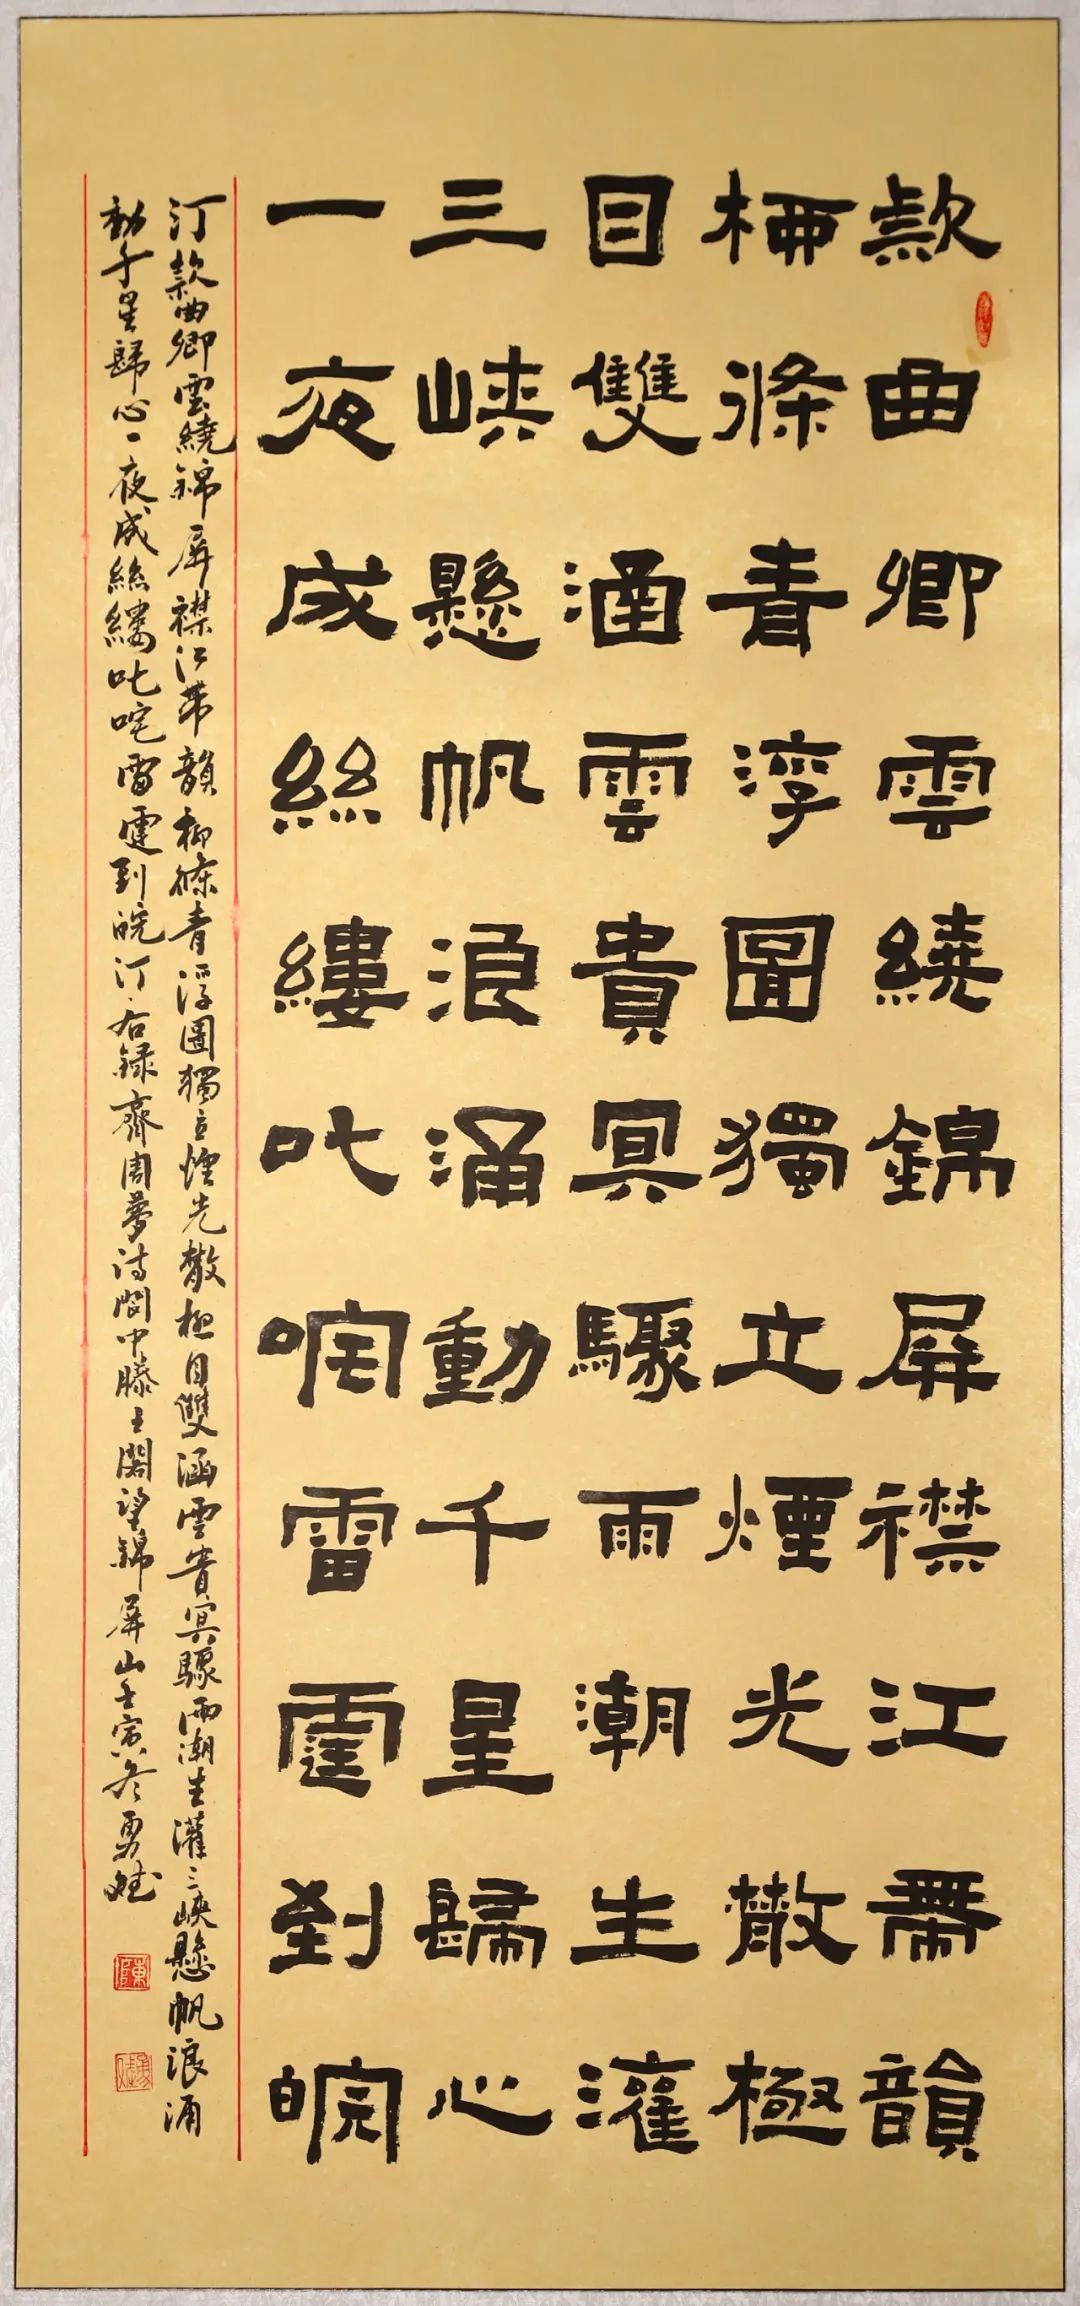 款曲卿雲繞錦屏襟江帶韻
柳條青浮圖獨立煙光散極
目雙涵雲貴冥驟雨潮生灌
三峽懸帆浪涌動千星歸心
一夜成絲縷叱咤雷霆到皖
汀款曲卿雲繞錦屏襟江帶韻柳條青浮圖獨立煙光散極目雙涵雲貴冥驟雨潮生灌三峽懸帆浪涌
動千星歸心一夜成絲縷叱咤雷霆到皖汀右録齊周夢詩閬中滕王閣望錦屏山壬寅冬勇斌